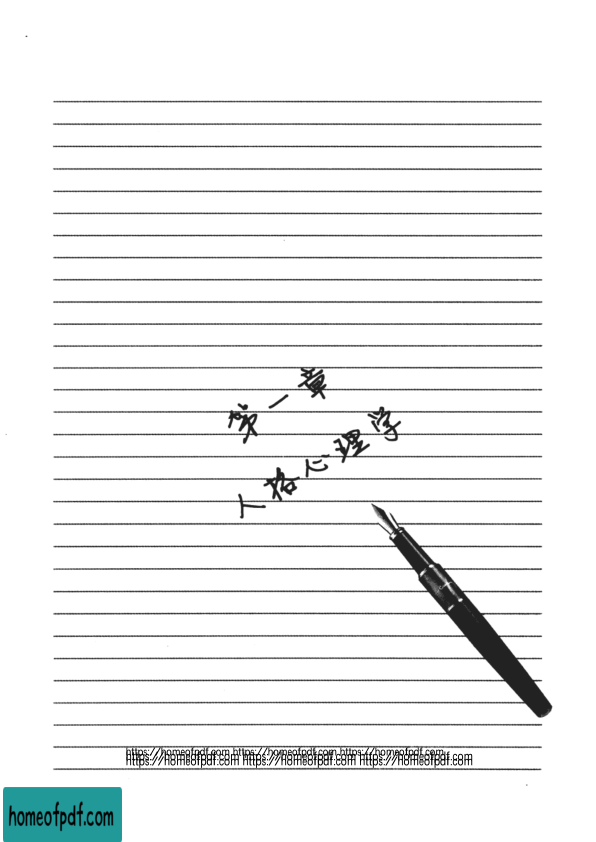 第一章
人格心理学
https://homeofpdf.com https://homeofpdf.com https://homeofpdf.com
https://homeofpdf.com https://homeofpdf.com https://homeofpdf.com
homeofpdf.com